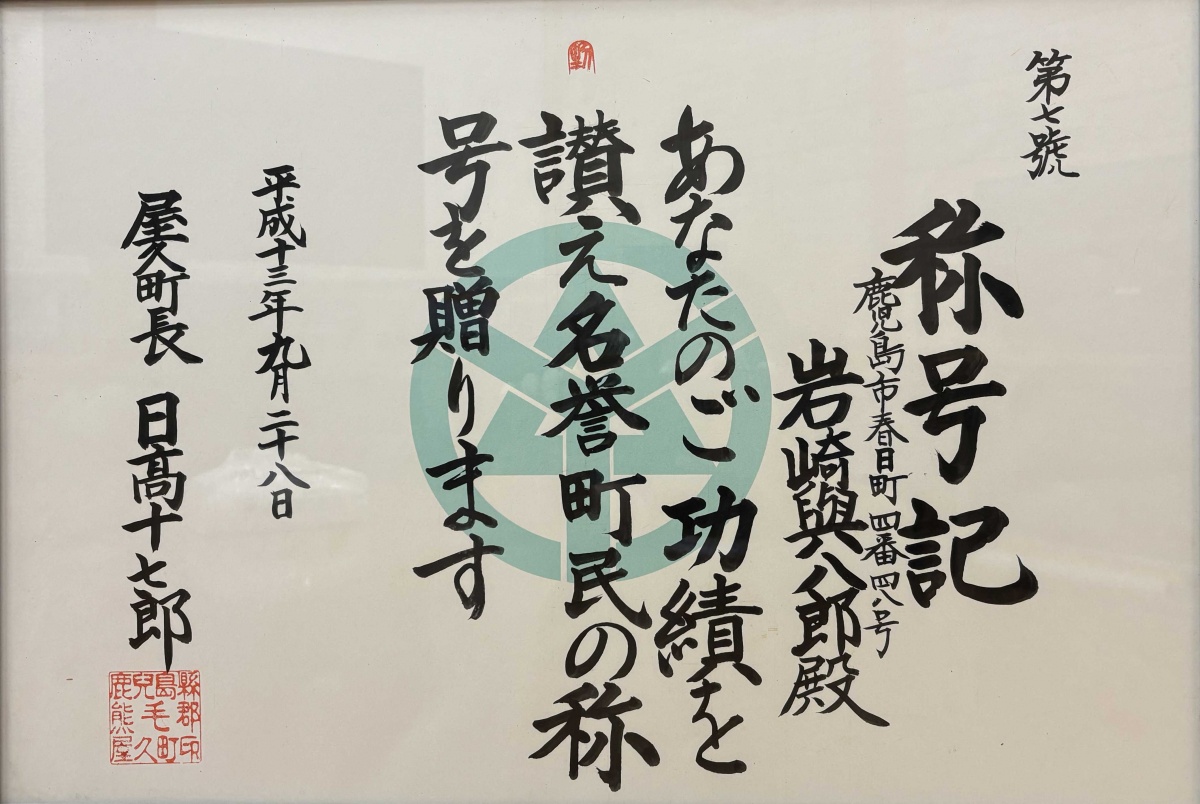 第七號
称号記
鹿児島市春日町四番四八号
岩崎與八郎殿
あなたのご功績を
讃え名誉町民の称
号を贈ります
平成十三年九月二十八日
屋久町長 日髙十七郎
縣郡印
島毛町
兒久
鹿熊屋